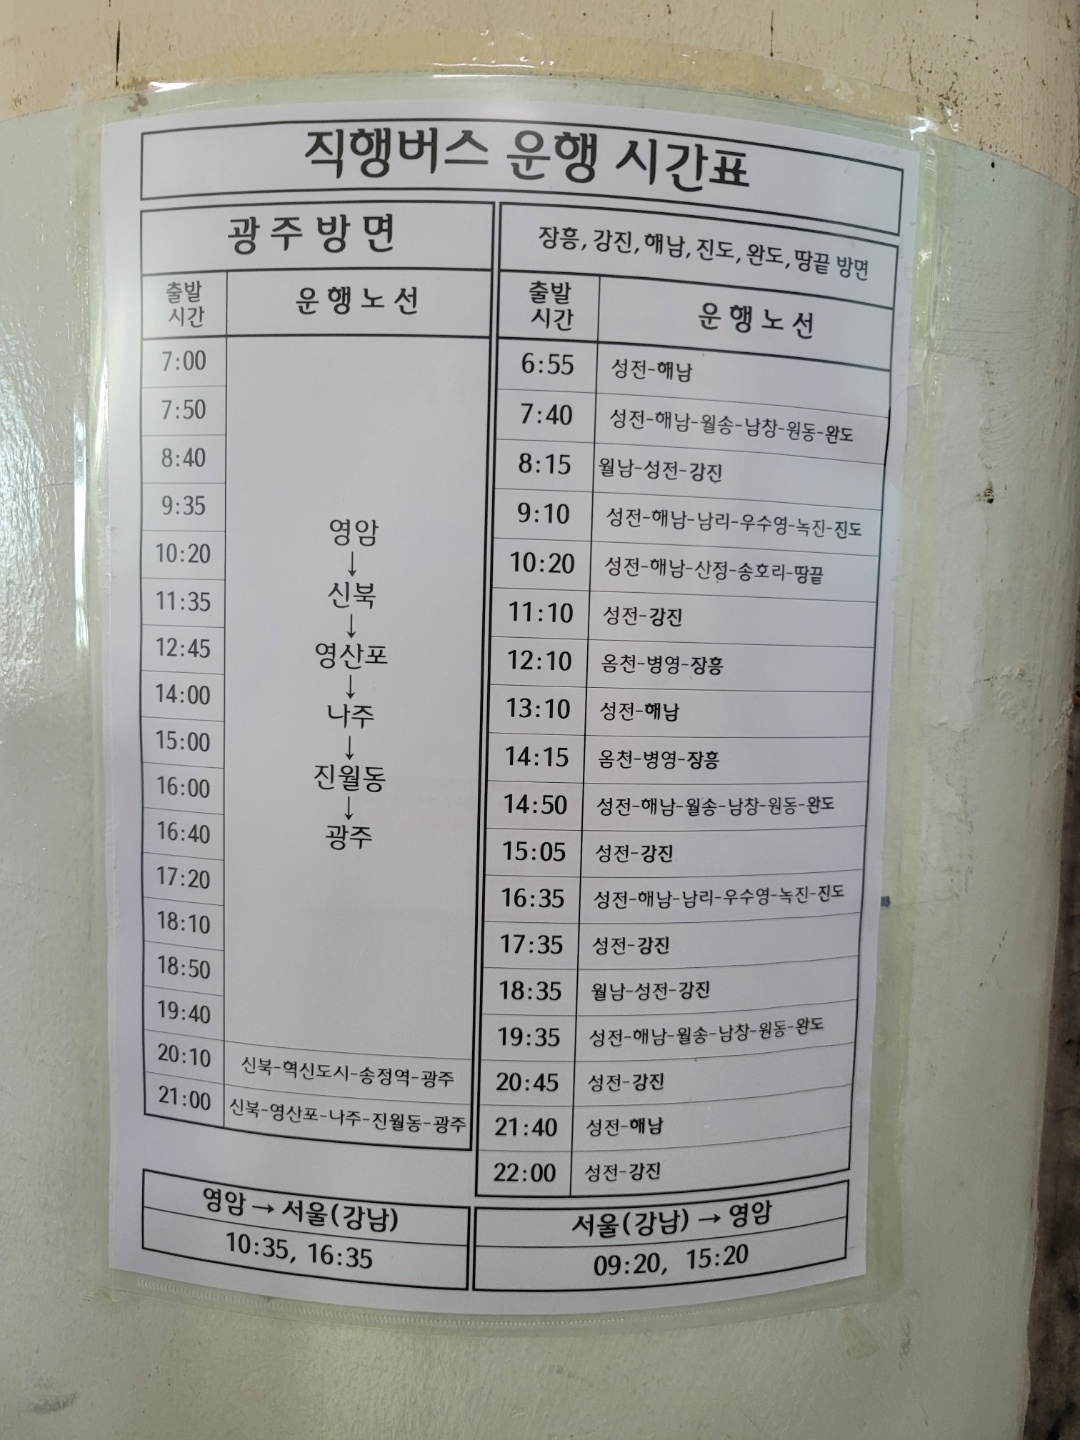 직행버스 운행 시간표
광주방면
출발시간 운행노선
7:00
7:50
8:40
9:35
10:20
11:35
12:45
14:00
15:00
16:00
16:40
17:20
18:10
18:50
19:40
영암
↓
신북
↓
영산포
↓
나주
↓
진월동
↓
광주
20:10 신북-혁신도시-송정역-광주
21:00 신북-영산포-나주-진월동-광주
장흥, 강진, 해남, 진도, 완도, 땅끝 방면
출발시간 운행노선
6:55 성전-해남
7:40 성전-해남-월송-남창-원동-완도
8:15 월남-성전-강진
9:10 성전-해남-남리-우수영-녹진-진도
10:20 성전-해남-산정-송호리-땅끝
11:10 성전-강진
12:10 옴천-병영-장흥
13:10 성전-해남
14:15 옴천-병영-장흥
14:50 성전-해남-월송-남창-원동-완도
15:05 성전-강진
16:35 성전-해남-남리-우수영-녹진-진도
17:35 성전-강진
18:35 월남-성전-강진
19:35 성전-해남-월송-남창-원동-완도
20:45 성전-강진
21:40 성전-해남
22:00 성전-강진
영암 → 서울(강남)
10:35, 16:35
서울(강남) → 영암
09:20, 15:20